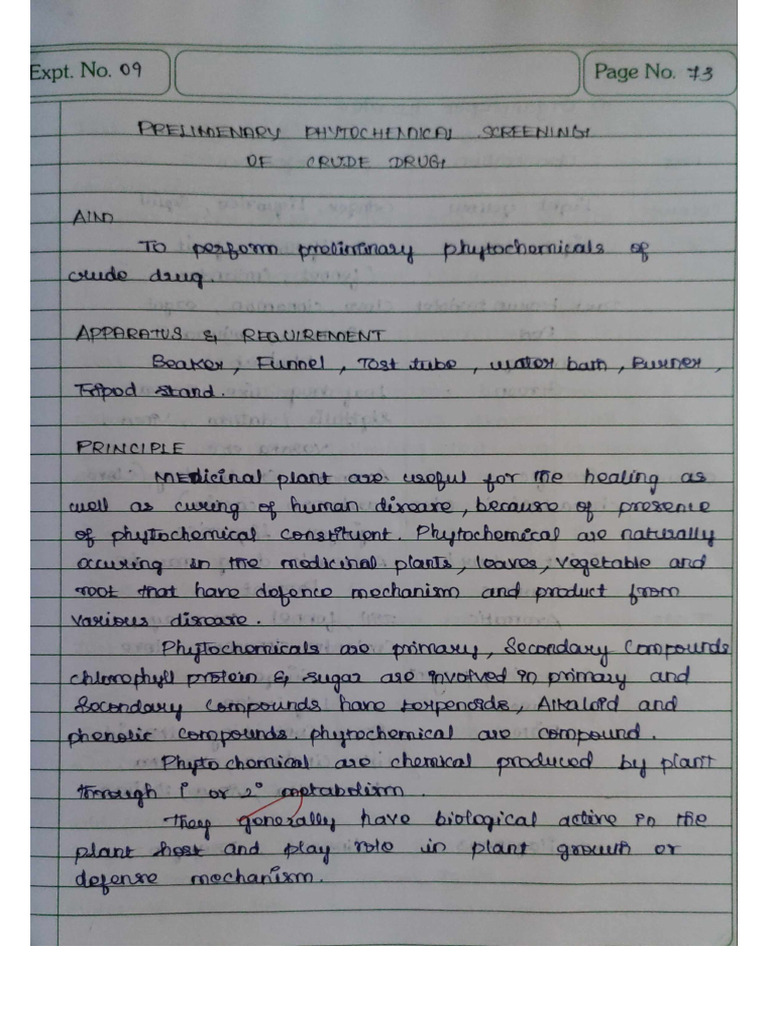 Expt. No. 09
Page No. 73
PRELIMENARY PHYTOCHEMICAL SCREENING
OF CRUDE DRUG
AIM
To perform preliminary phytochemicals of
crude drug.
APPARATUS & REQUIREMENT
Beaker, Funnel, Test tube, water bath, Burner,
Tripod stand.
PRINCIPLE
Medicinal plant are useful for the healing as
well as curing of human disease, because of presence
of phytochemical constituent. Phytochemical are naturally
occuring in the medicinal plants, leaves, vegetable and
root that have defence mechanism and product from
various disease.
Phytochemicals are primary, Secondary Compounds
chlorophyll protein & sugar are involved in primary and
Secondary compounds have terpenoids, Alkaloid and
phenolic compounds. phytochemical are compound.
Phyto chemical are chemical produced by plant
through 1° or 2° metabolism.
They generally have biological active in the
plant host and play role in plant growth or
defense mechanism.